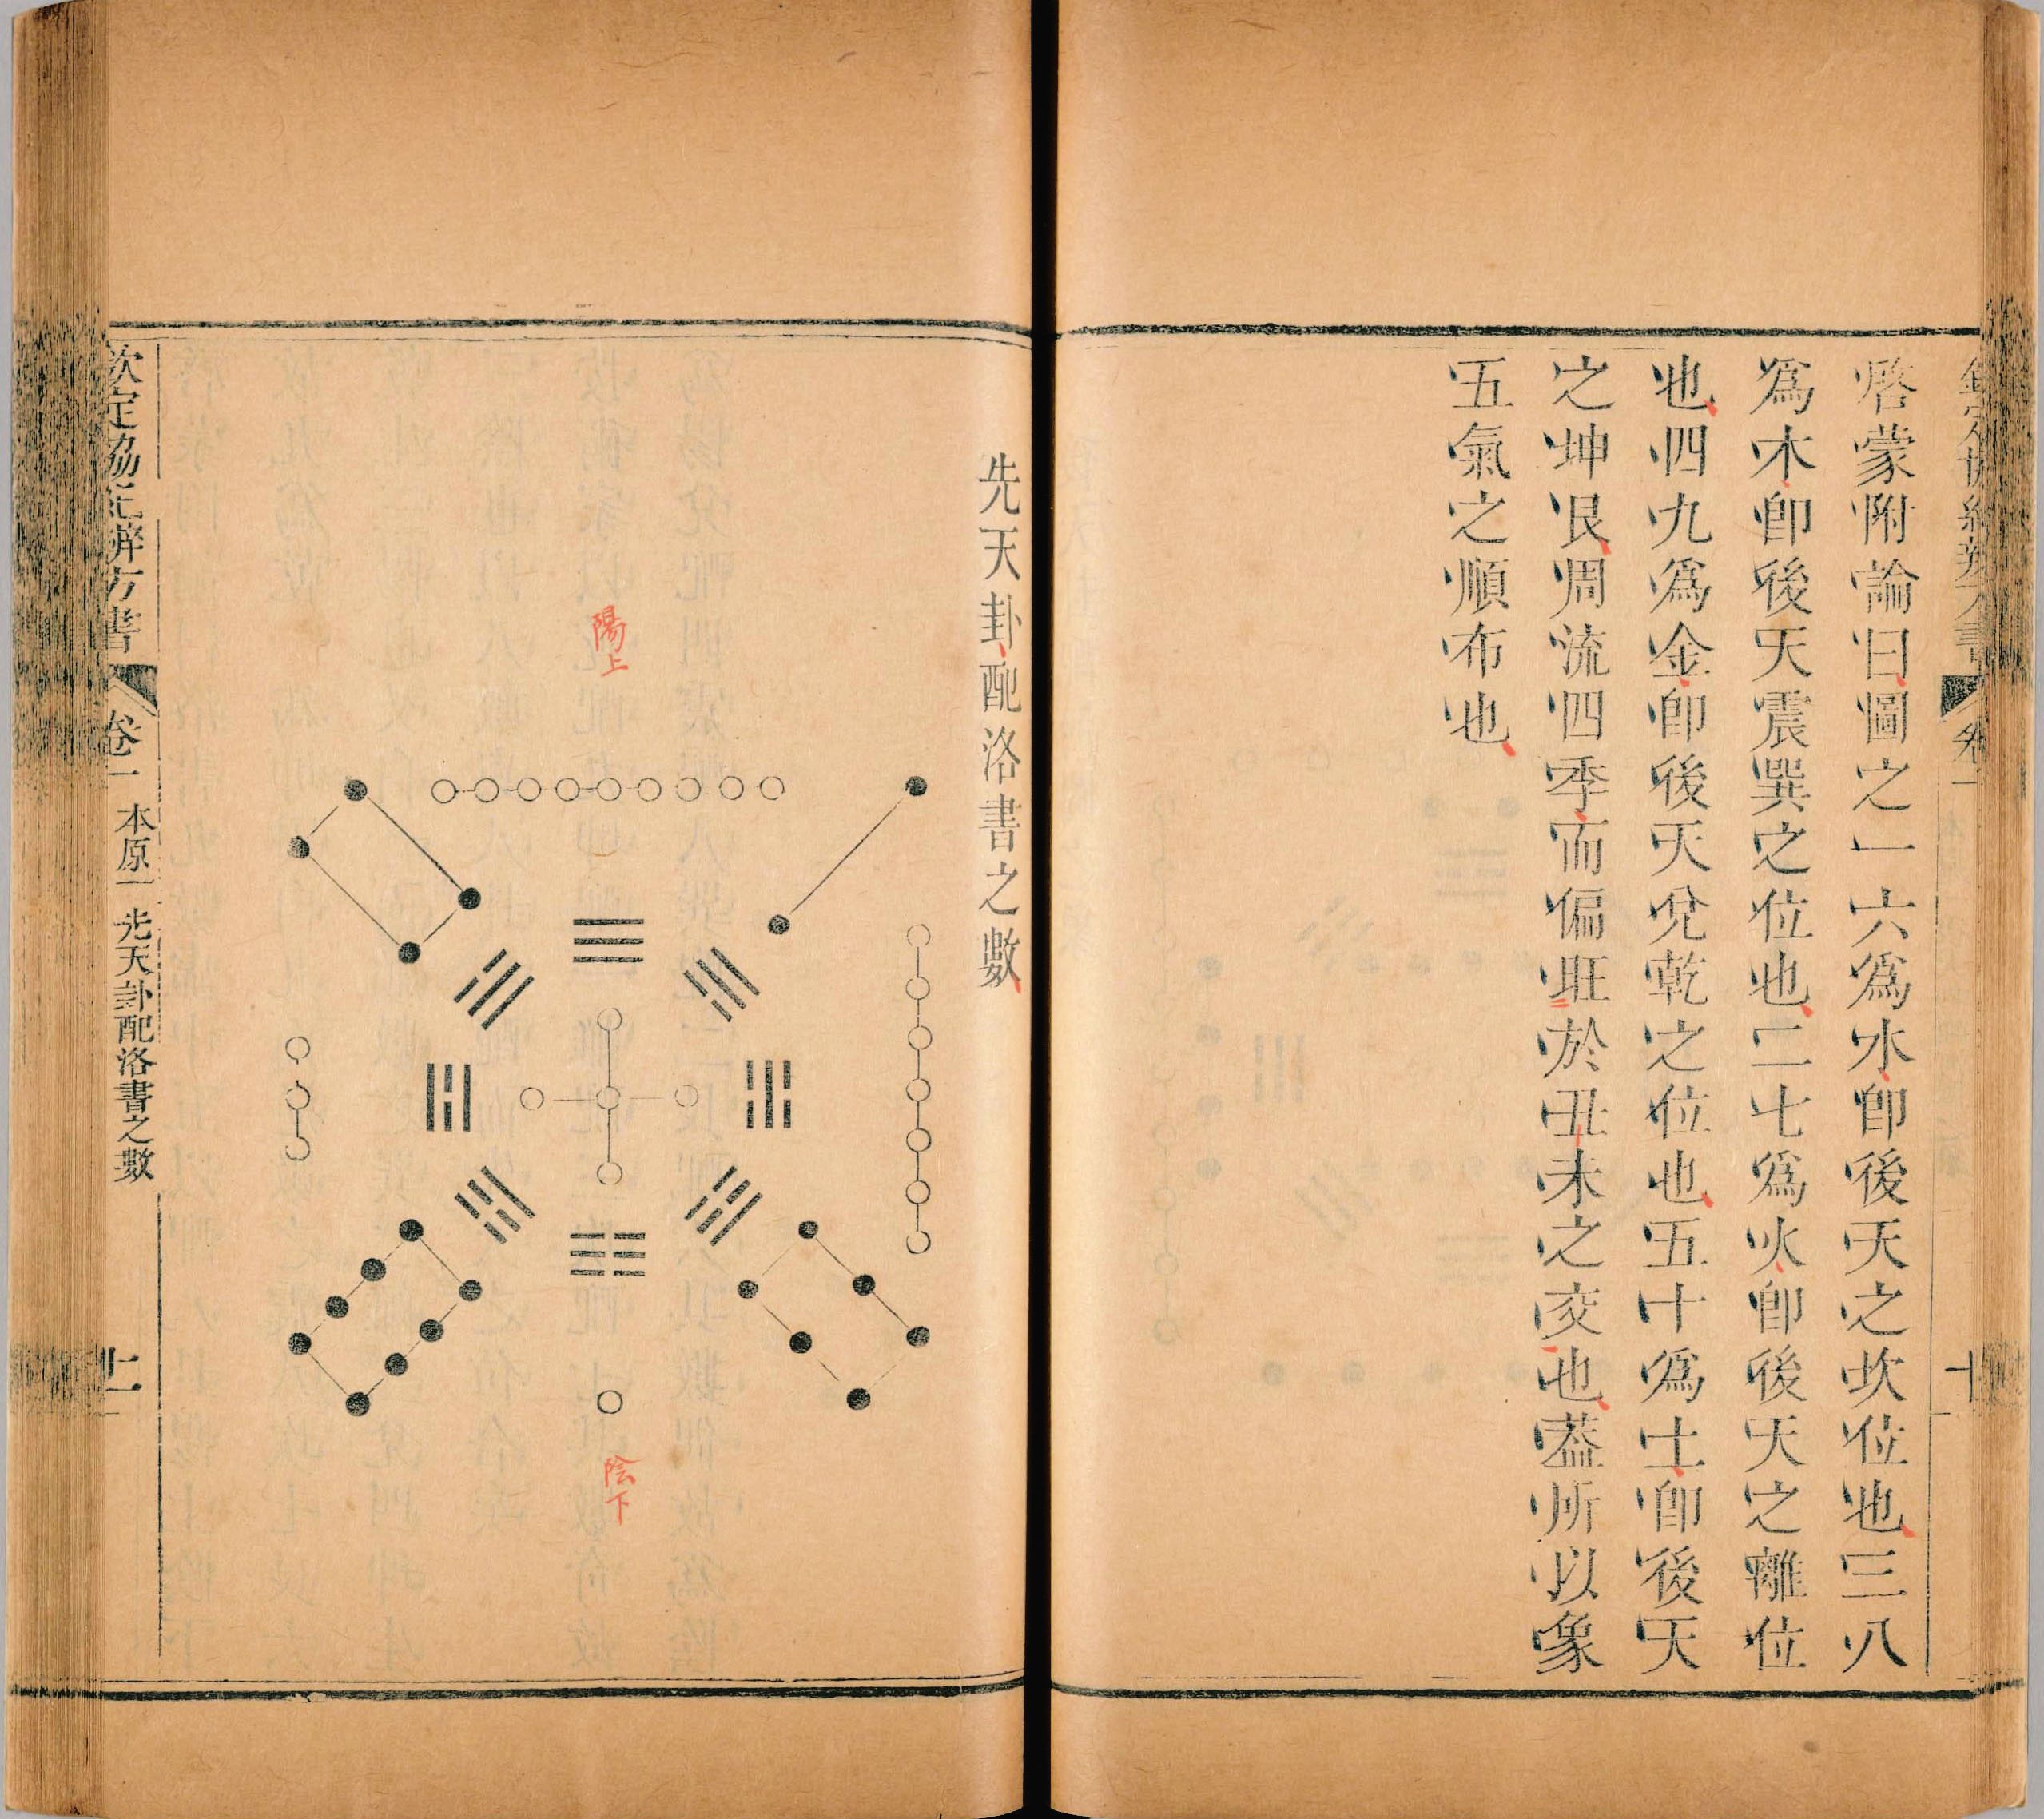 欽定協紀辨方書 卷一 十
啓蒙附論曰圖之一六爲水卽後天之坎位也三八
爲木卽後天震巽之位也二七爲火卽後天之離位
也四九爲金卽後天兌乾之位也五十爲土卽後天
之坤艮周流四季而偏旺於丑未之交也葢所以象
五氣之順布也
先天卦配洛書之數
陽上
陰下
欽定協紀辨方書 卷一 本原一 先天卦配洛書之數 十一